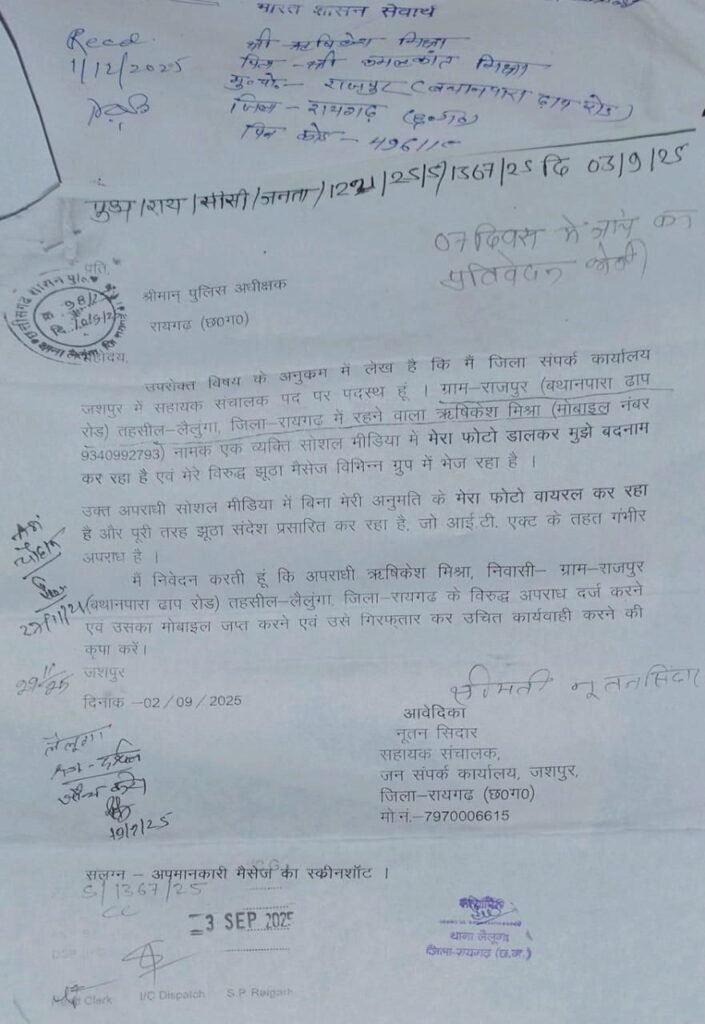 भारत शासन सेवार्थ
Recd.
1/12/2025
श्री ऋषिकेश मिश्रा
पिता - श्री कमलकांत मिश्रा
राजपुर (बथानपारा ढाप रोड)
जिला - रायगढ़ (छ०ग०)
पिन कोड -
/सीसी/जनता/ /1367/25 दि 03/9/25
07 दिवस में जांच का
प्रतिवेदन
प्रति,
श्रीमान् पुलिस अधीक्षक
रायगढ़ (छ०ग०)
महोदय,
उपरोक्त विषय के अनुकम में लेख है कि मैं जिला संपर्क कार्यालय
जशपुर में सहायक संचालक पद पर पदस्थ हूं । ग्राम-राजपुर (बथानपारा ढाप
रोड) तहसील-लैलुंगा, जिला-रायगढ में रहने वाला ऋषिकेश मिश्रा (मोबाइल नंबर
9340992793) नामक एक व्यक्ति सोशल मीडिया में मेरा फोटो डालकर मुझे बदनाम
कर रहा है एवं मेरे विरुद्ध झूठा मैसेज विभिन्न ग्रुप में भेज रहा है ।
उक्त अपराधी सोशल मीडिया में बिना मेरी अनुमति के मेरा फोटो वायरल कर रहा
है और पूरी तरह झूठा संदेश प्रसारित कर रहा है, जो आई.टी. एक्ट के तहत गंभीर
अपराध है ।
मैं निवेदन करती हूं कि अपराधी ऋषिकेश मिश्रा, निवासी- ग्राम-राजपुर
(बथानपारा ढाप रोड) तहसील-लैलुंगा, जिला-रायगढ के विरुद्ध अपराध दर्ज करने
एवं उसका मोबाइल जप्त करने एवं उसे गिरफ्तार कर उचित कार्यवाही करने की
कृपा करें।
जशपुर
दिनांक -02/09/2025
श्रीमती नूतन सिदार
आवेदिका
नूतन सिदार
सहायक संचालक,
जन संपर्क कार्यालय, जशपुर,
जिला-रायगढ (छ०ग०)
मो नं.-7970006615
लैलूंगा
सलग्न - अपमानकारी मैसेज का स्कीनशॉट ।
S/1367/25
CC
3 SEP 2025
थाना लैलूंगा
जिला-रायगढ़ (छ.ग.)
Clerk I/C Dispatch S.P. Raigarh